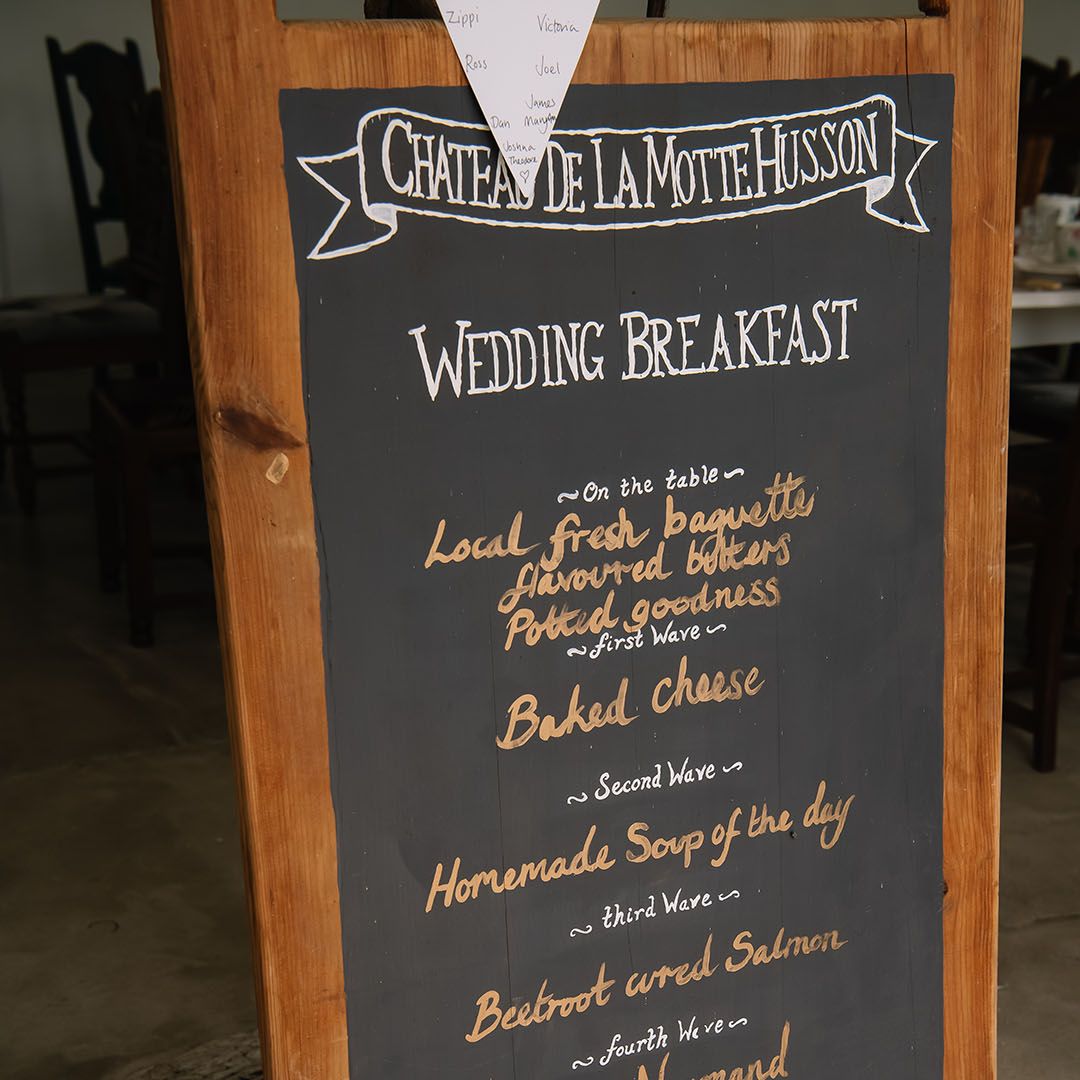 Zippi Victoria
Ross Joel
James
Dan
Joshua
Theodore
CHATEAU DE LA MOTTE HUSSON
WEDDING BREAKFAST
~ On the table ~
Local fresh baguette
flavoured butters
Potted goodness
~ first Wave ~
Baked cheese
~ Second Wave ~
Homemade Soup of the day
~ third Wave ~
Beetroot cured Salmon
~ fourth Wave ~
Normand